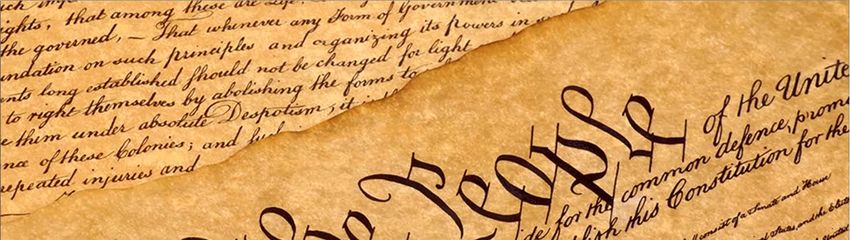 ights, that among these are Life,
the governed, — That whenever any Form of Government
undation on such principles and organizing its powers in such
nts long established should not be changed for light
to right themselves by abolishing the forms to
e them under absolute Despotism, it is
nce of these Colonies; and such
repeated injuries and
We People
of the Unite
ide for the common defence, promo
blish this Constitution for the
ll consist of a Senate and House